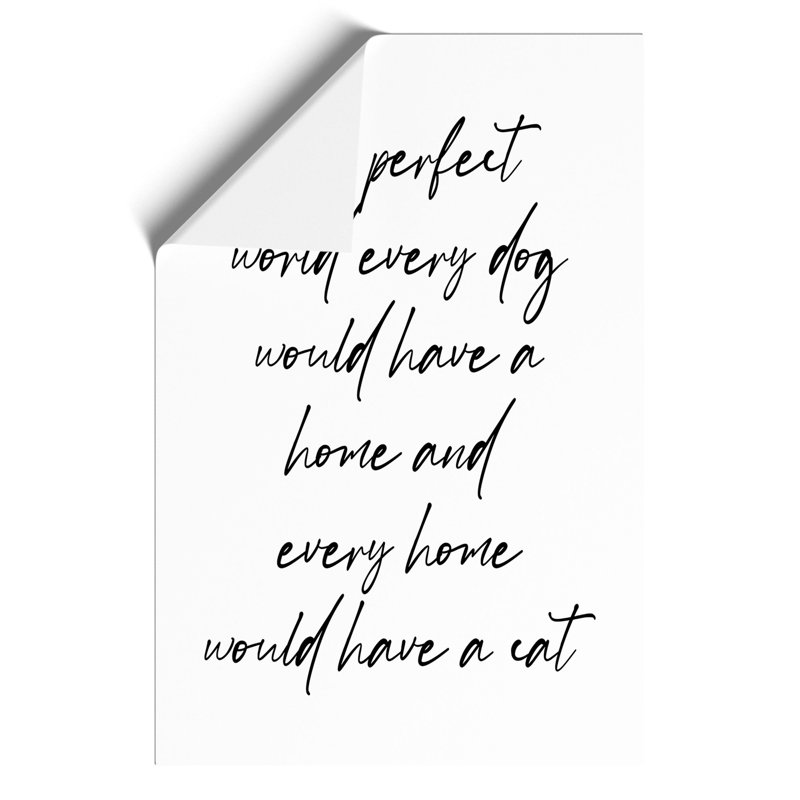 perfect
world every dog
would have a
home and
every home
would have a cat